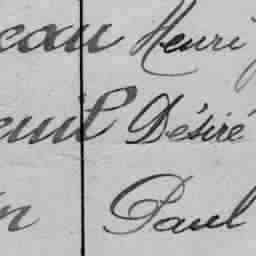 eau Henri
euil Désiré
n Paul